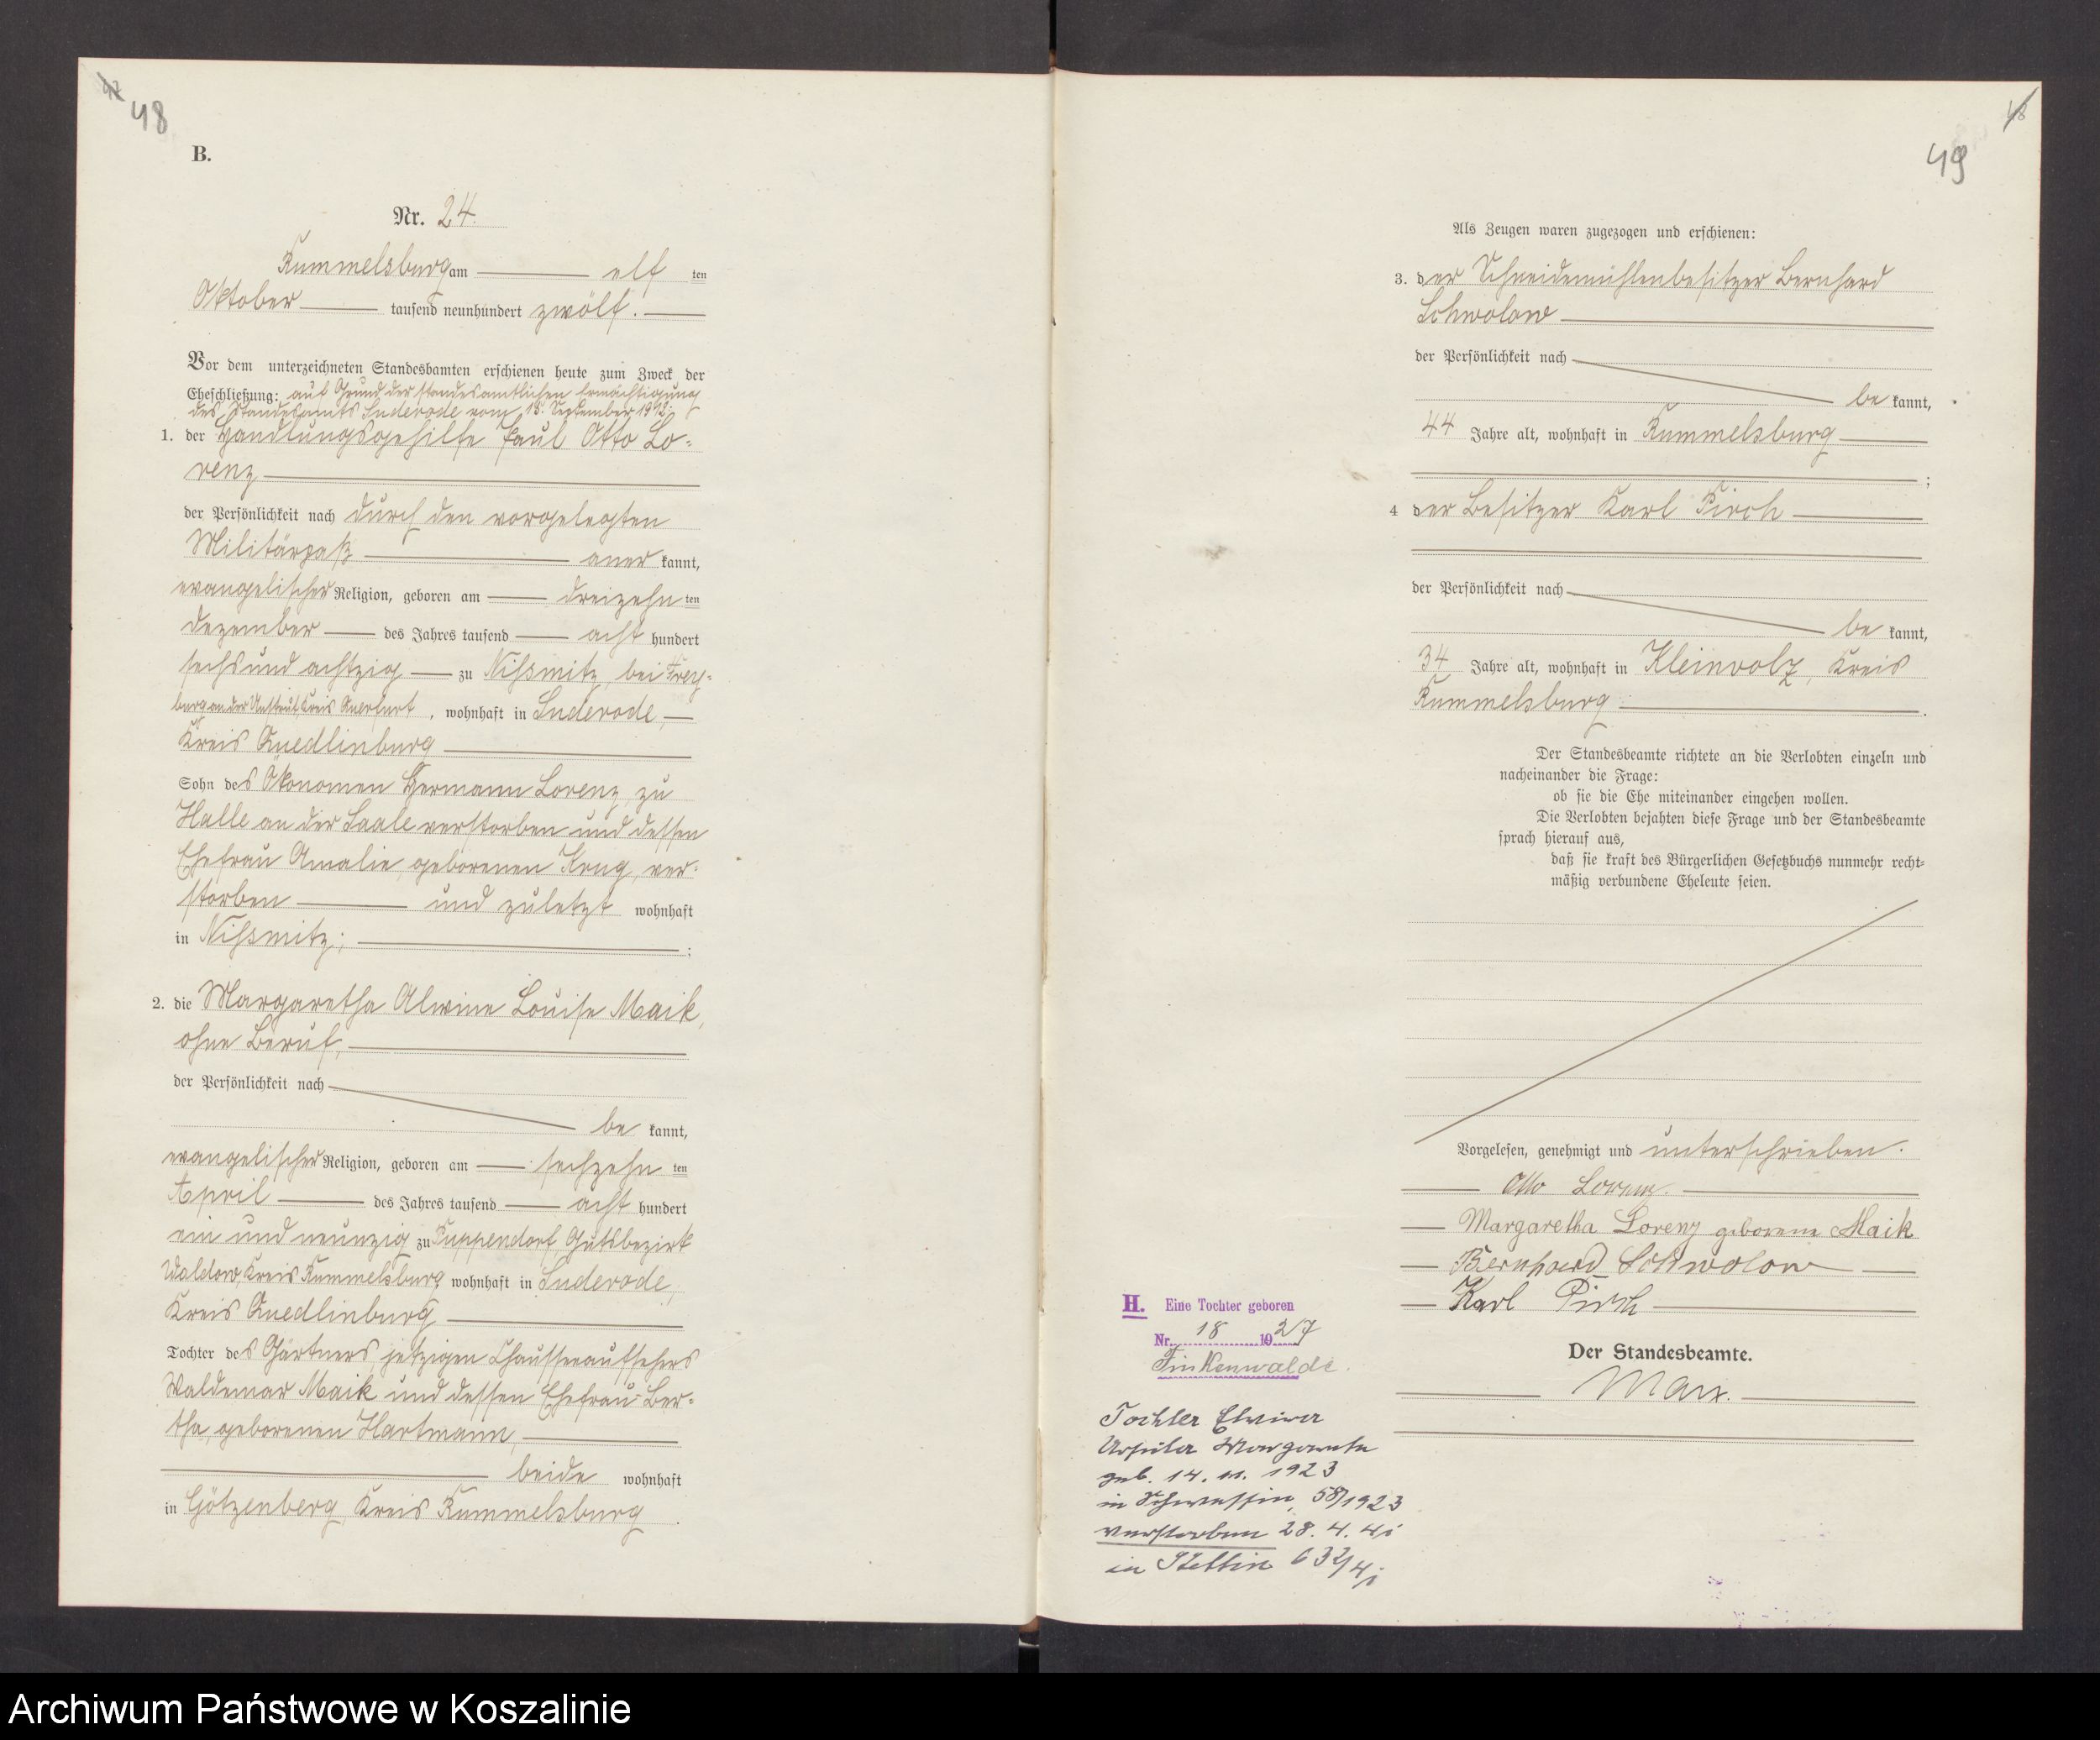 48
B.
Nr. 24.
Rummelsburg am elf ten
Oktober tausend neunhundert zwölf.
Vor dem unterzeichneten Standesbamten erschienen heute zum Zweck der
Eheschließung: auf Grund der standesamtlichen Ermächtigung
des Standesamts Suderode vom 18. September 1912:
1. der Handlungsgehilfe Paul Otto Lo-
renz
der Persönlichkeit nach durch den vorgelegten
Militärpaß aner kannt,
evangelischer Religion, geboren am dreizehn ten
Dezember des Jahres tausend acht hundert
sechs und achtzig zu Nißmitz, bei Frey-
burg an der Unstrut, Kreis Querfurt, wohnhaft in Suderode,
Kreis Quedlinburg
Sohn des Ökonomen Hermann Lorenz, zu
Halle an der Saale verstorben und dessen
Ehefrau Amalie, geborenen Krug, ver-
storben und zuletzt wohnhaft
in Nißmitz;
2. die Margaretha Alwine Louise Maik,
ohne Beruf,
der Persönlichkeit nach
be kannt,
evangelischer Religion, geboren am sechzehn ten
April des Jahres tausend acht hundert
ein und neunzig zu Puppendorf, Gutsbezirk
Waldow, Kreis Rummelsburg, wohnhaft in Suderode,
Kreis Quedlinburg
Tochter des Gärtners, jetzigen Chausseeaufsehers
Waldemar Maik und dessen Ehefrau Ber-
tha, geborenen Hartmann,
beide wohnhaft
in Götzenberg, Kreis Rummelsburg.
49
Als Zeugen waren zugezogen und erschienen:
3. der Schneidemühlenbesitzer Bernhard
Schwolow
der Persönlichkeit nach
be kannt,
44 Jahre alt, wohnhaft in Rummelsburg
;
4 der Besitzer Karl Pirch
der Persönlichkeit nach
be kannt,
34 Jahre alt, wohnhaft in Kleinvolz, Kreis
Rummelsburg.
Der Standesbeamte richtete an die Verlobten einzeln und
nacheinander die Frage:
ob sie die Ehe miteinander eingehen wollen.
Die Verlobten bejahten diese Frage und der Standesbeamte
sprach hierauf aus,
daß sie kraft des Bürgerlichen Gesetzbuchs nunmehr recht-
mäßig verbundene Eheleute seien.
Vorgelesen, genehmigt und unterschrieben.
Otto Lorenz.
Margaretha Lorenz geborene Maik
Bernhard Schwolow
Karl Pirch
Der Standesbeamte.
Marx.
H. Eine Tochter geboren
Nr. 18 1927
Finkenwalde.
Tochter
Ursula Margarete
geb. 14. 11. 1923
in Schwessin, 58/1923
verstorben 28. 4. 41
in Stettin 632/41
Archiwum Państwowe w Koszalinie